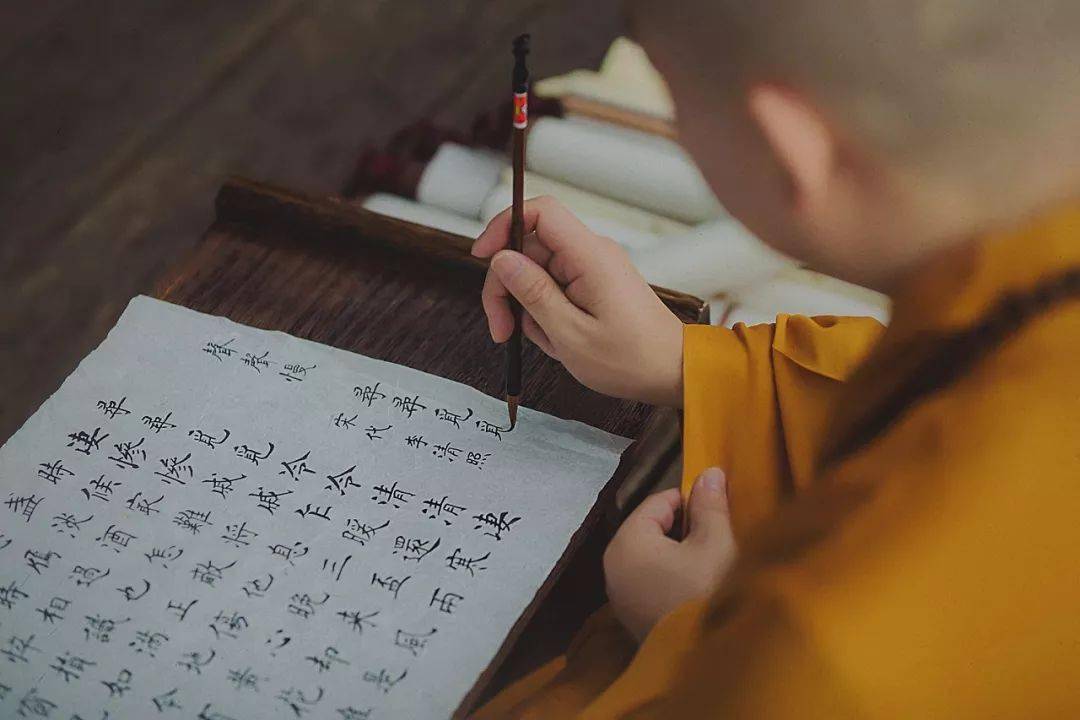 聲聲慢
尋尋覓覓
宋代 李清照
尋尋覓覓冷冷清清凄
凄慘慘戚戚乍暖還寒
時候最難將息三盃兩
盞淡酒怎敵他晚來風
雁過也正傷心却是
時相識滿地黃花堆
悴損如今
窗